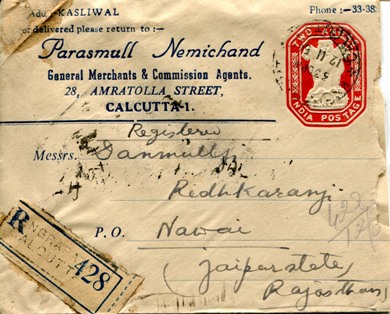 Add: KASLIWAL
Phone :—33-38
not delivered please return to :—
Parasmull Nemichand
General Merchants & Commission Agents.
28, AMRATOLLA STREET,
CALCUTTA-1.
TWO ANNAS
INDIA POSTAGE
Registered
Messrs. Danmullji
Redhkaranji
P. O. Nawai
(Jaipur state)
Rajasthan
R
428